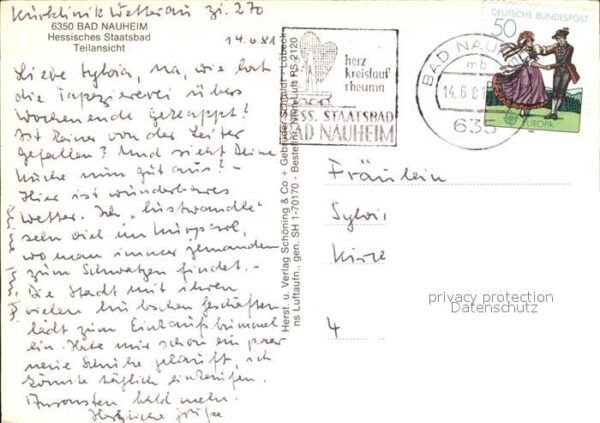 Kurklinik Wetterau Zi. 270
6350 BAD NAUHEIM
Hessisches Staatsbad
Teilansicht
14.6.81
Liebe Sylvia, na, wie hat
die Tapeziererei übers
Wochenende geklappt?
Ist keiner von der Leiter
gefallen? Und sieht Deine
Küche nun gut aus? -
Hier ist wunderbares
Wetter. Ich "lustwandle"
sehr viel im Kurpark,
wo man immer jemanden
zum Schwatzen findet. -
Die Stadt mit ihren
vielen hübschen Geschäften
lädt zum Einkaufsbummel
ein. Habe mir schon ein paar
neue Schuhe gekauft, ich
könnte täglich einkaufen.
Ansonsten bald mehr.
Herzliche Grüße
Herst. u. Verlag Schöning & Co + Gebrüder Schmidt · Lübeck
ns Luftaufn., gen. SH 1-70170 - Bestell
herz
kreislauf
rheuma
HESS. STAATSBAD
BAD NAUHEIM
BAD NAU
mb
14.6.81
635
DEUTSCHE BUNDESPOST
50
EUROPA
Fräulein
Sylvi
4
privacy protection
Datenschutz